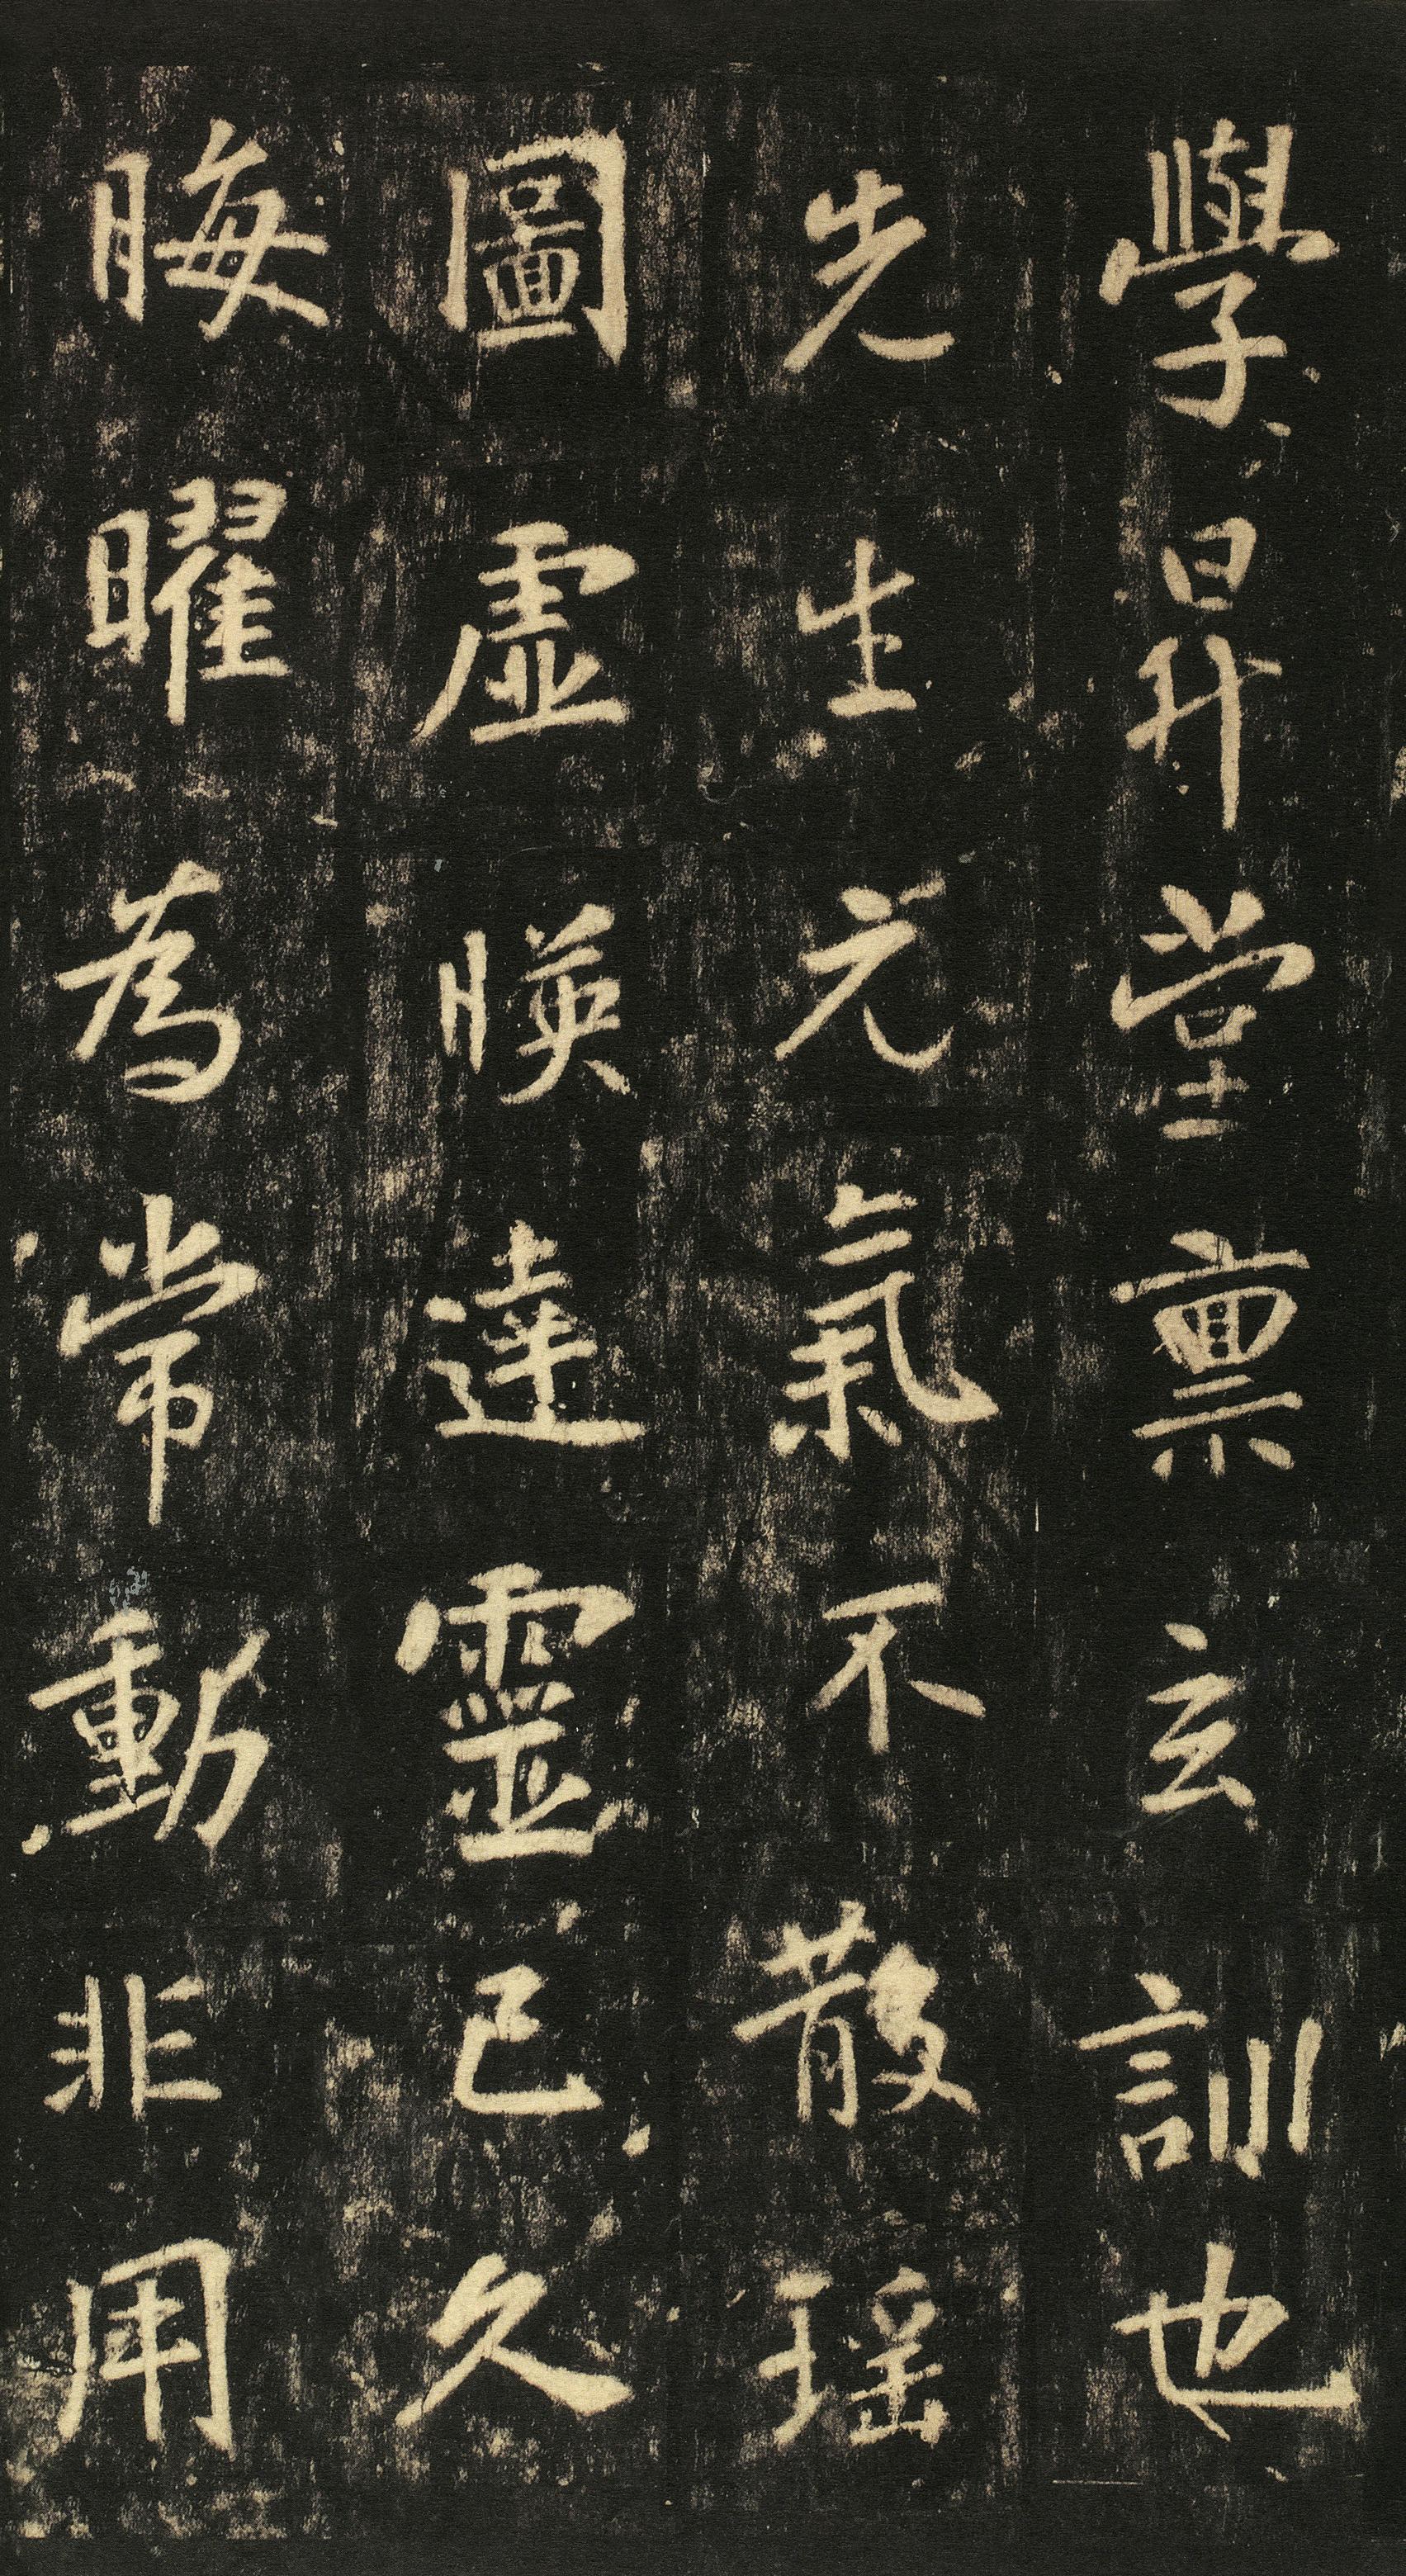 學昇堂禀玄訓也
先生元氣不散瑶
圖虛暎達靈已久
晦曜為常動非用